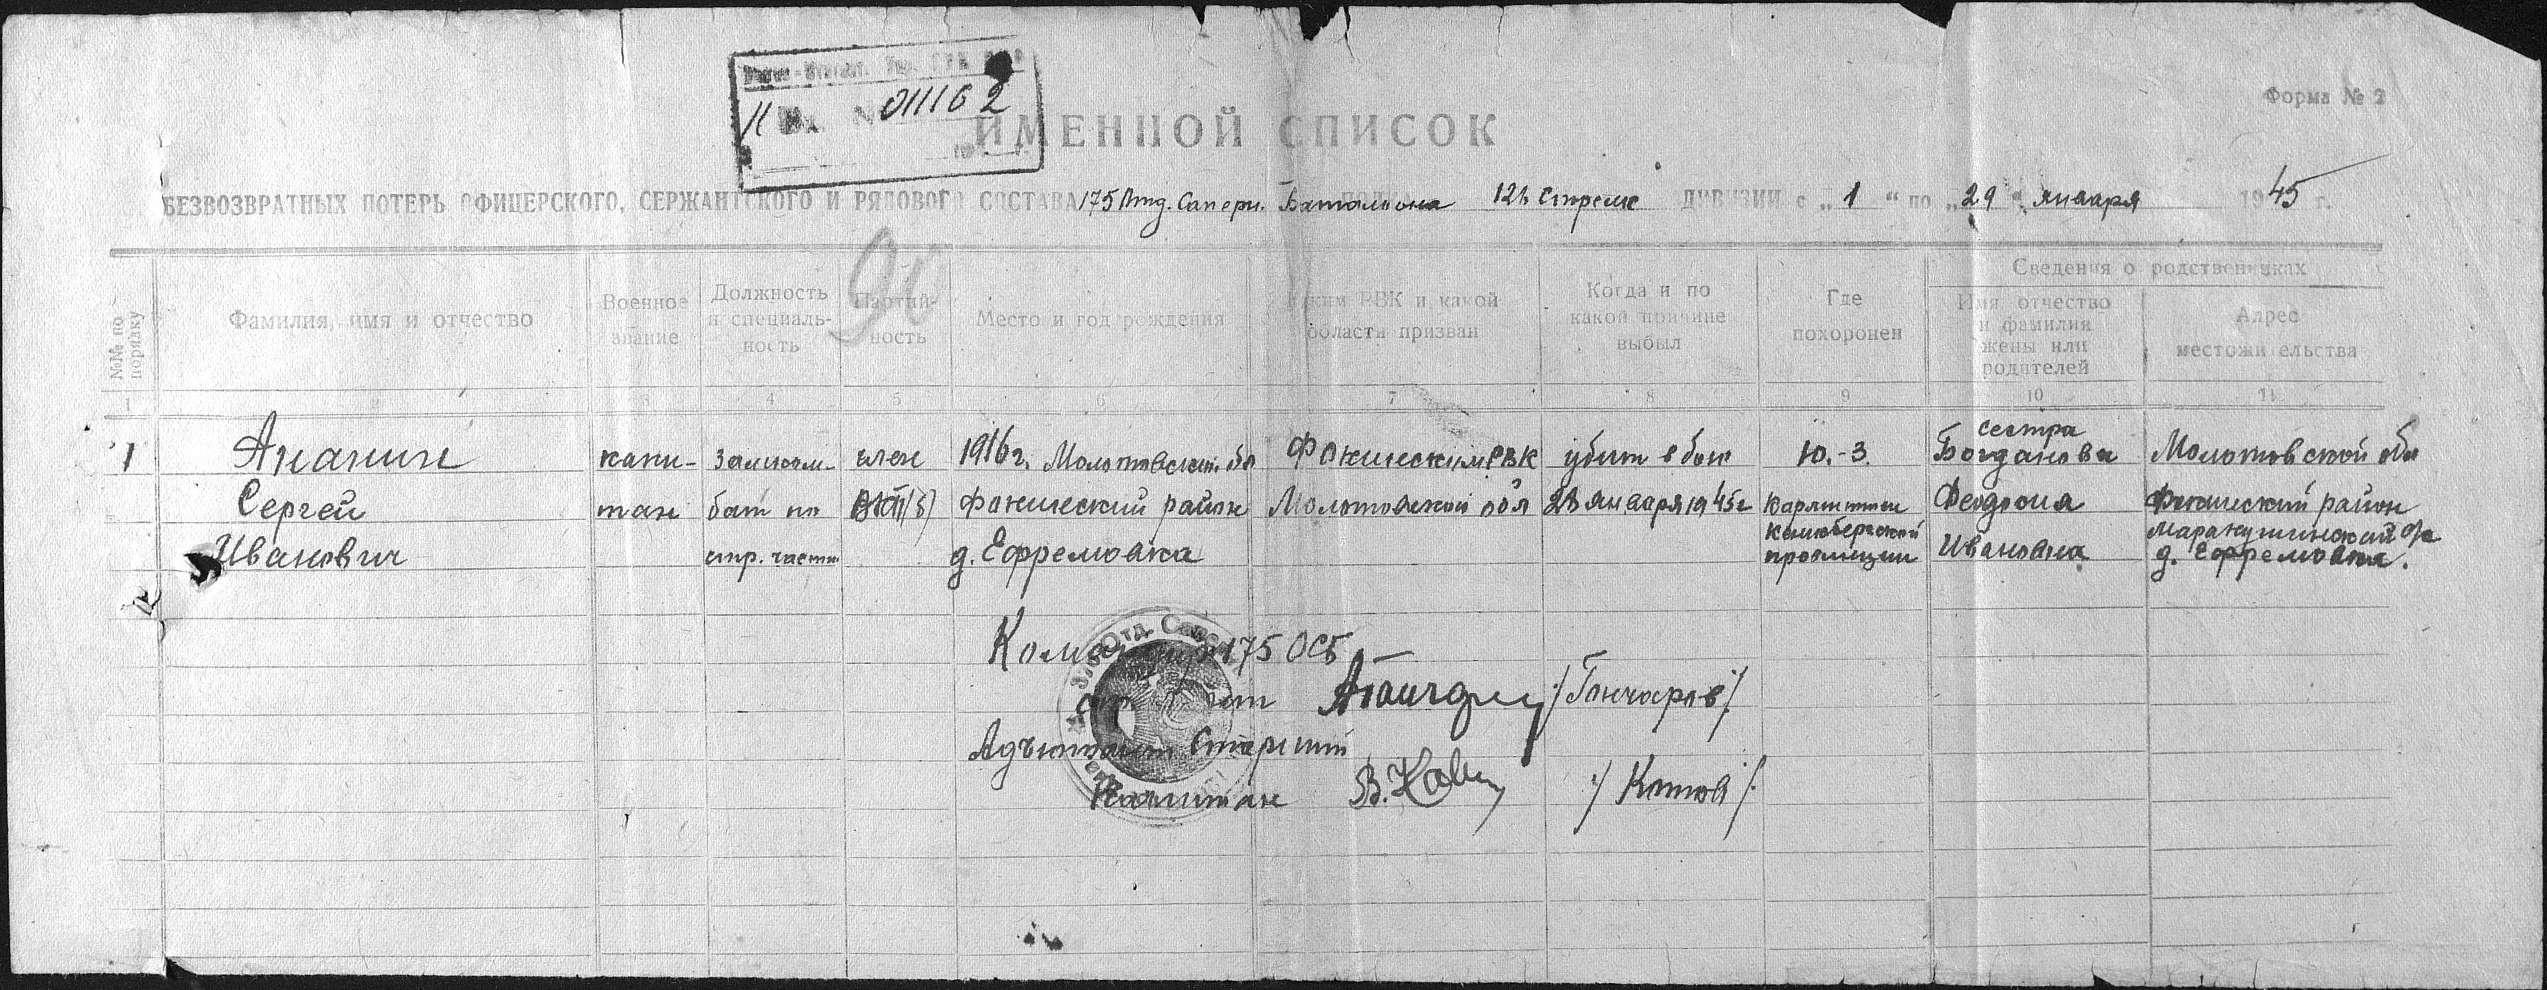 Форма № 2
№ 011162
ИМЕННОЙ СПИСОК
БЕЗВОЗВРАТНЫХ ПОТЕРЬ ОФИЦЕРСКОГО, СЕРЖАНТСКОГО И РЯДОВОГО СОСТАВА 175 Отд. Саперн. Батальона ПОЛКА ДИВИЗИИ с „1“ по „29“ января 1945 г.
90
№№ по порядку
Фамилия, имя и отчество
Военное звание
Должность и специальность
Партийность
Место и год рождения
Каким РВК и какой области призван
Когда и по какой причине выбыл
Где похоронен
Сведения о родственниках
Имя, отчество и фамилия жены или родителей
Адрес местожительства
1 2 3 4 5 6 7 8 9 10 11
сестра
1 Ананин капи- зам.ком. член 1916 г. Молотовской обл Фокинским РВК убит в бою Ю.-З. Богданова Молотовской обл
Сергей тан бат по ВКП(б) Фокинский район Молотовской обл 28 января 1945 г Феодосия Фокинский район
Кенигсбергской
Иванович стр. части д. Ефремовка провинции Ивановна д. Ефремовка.
Командир 175 ОСБ
/Гончаров/
Адъютант Старший
Капитан /Котов/